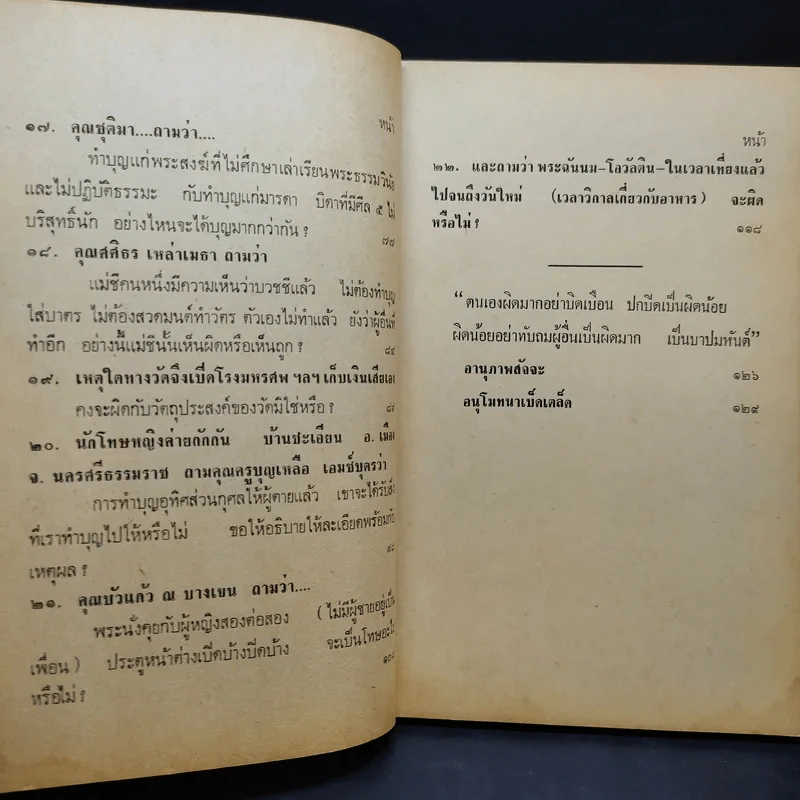 หน้า
๑๗. คุณชุติมา....ถามว่า....
ทำบุญแก่พระสงฆ์ที่ไม่ศึกษาเล่าเรียนพระธรรมวินัย
และไม่ปฏิบัติธรรมะ กับทำบุญแก่มารดา บิดาที่มีศีล ๕ ไม่
บริสุทธิ์นัก อย่างไหนจะได้บุญมากกว่ากัน ?
๗๗
๑๘. คุณสสิธร เหล่าเมธา ถามว่า
แม่ชีคนหนึ่งมีความเห็นว่าบวชชีแล้ว ไม่ต้องทำบุญ
ใส่บาตร ไม่ต้องสวดมนต์ทำวัตร ตัวเองไม่ทำแล้ว ยังว่าผู้อื่นที่
ทำอีก อย่างนี้แม่ชีนั้นเห็นผิดหรือเห็นถูก ?
๑๙. เหตุใดทางวัดจึงเปิดโรงมหรศพ ฯลฯ เก็บเงินเสียเอง
คงจะผิดกับวัตถุประสงค์ของวัดมิใช่หรือ ?
๒๐. นักโทษหญิงค่ายกักกัน บ้านชะเอียน อ. เมือง
จ. นครศรีธรรมราช ถามคุณครูบุญเหลือ เอมซ์บุตรว่า
การทำบุญอุทิศส่วนกุศลให้ผู้ตายแล้ว เขาจะได้รับสิ่ง
ที่เราทำบุญไปให้หรือไม่ ขอให้อธิบายให้ละเอียดพร้อมกับ
เหตุผล ?
๒๑. คุณบัวแก้ว ณ บางเขน ถามว่า....
พระนั่งคุยกับผู้หญิงสองต่อสอง (ไม่มีผู้ชายอยู่เป็น
เพื่อน) ประตูหน้าต่างเปิดบ้างปิดบ้าง จะเป็นโทษอะไร
หรือไม่ ?
หน้า
๒๒. และถามว่า พระฉันนม-โอวัลติน-ในเวลาเที่ยงแล้ว
ไปจนถึงวันใหม่ (เวลาวิกาลเกี่ยวกับอาหาร) จะผิด
หรือไม่ ? ๑๑๘
“ตนเองผิดมากอย่าบิดเบือน ปกปิดเป็นผิดน้อย
ผิดน้อยอย่าทับถมผู้อื่นเป็นผิดมาก เป็นบาปมหันต์”
อานุภาพสัจจะ ๑๒๖
อนุโมทนาเบ็ดเตล็ด ๑๒๙